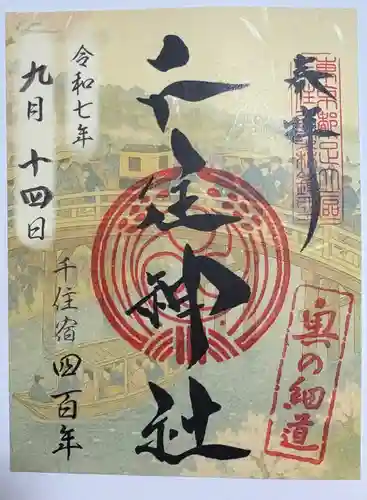 奉拝
東京都足立区
奥の細道
千住神社
令和七年
九月十四日
千住宿四百年